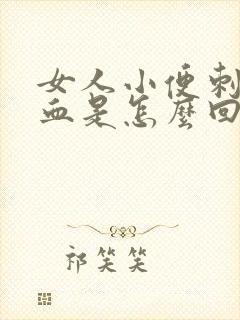 女人小便刺
血是怎麼回
祁笑笑